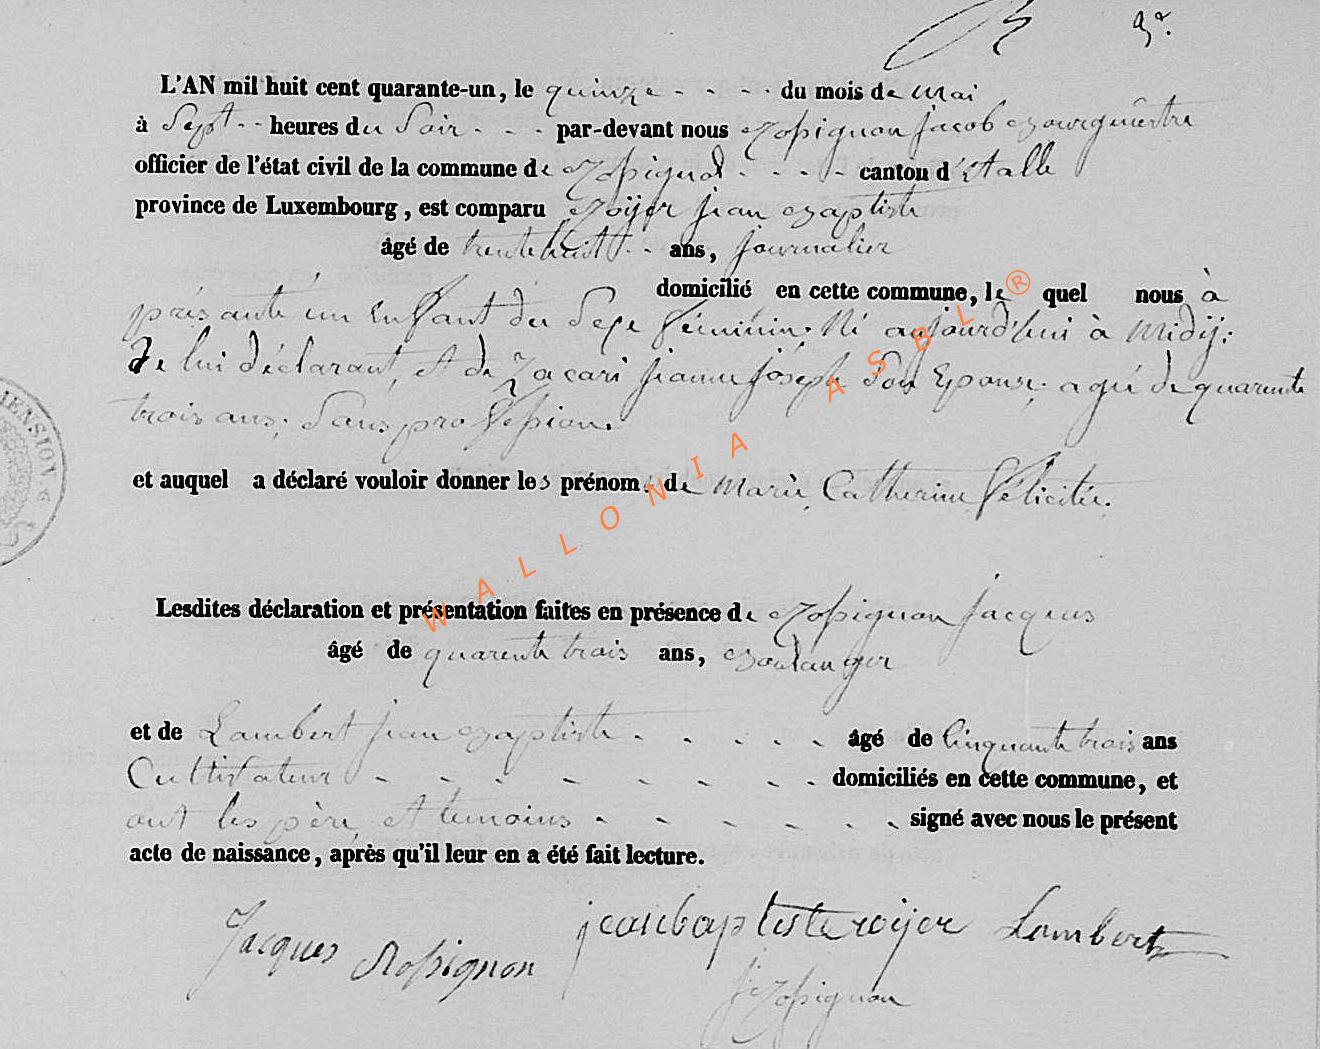 9e.
L'AN mil huit cent quarante-un, le quinze - - - - du mois de mai
à Sept - - heures du Soir - - - par-devant nous Rossignon jacob Bourgmestre
officier de l'état civil de la commune de Rossignol - - - - canton d'Etalle
province de Luxembourg, est comparu Roijer jean Baptiste
âgé de trente huit - - ans, journalier
domicilié en cette commune, le quel nous à
présanté un Enfant du Sexe féminin; Né aujourd'hui à Midij;
de lui déclarant, et de Zacari jeanne joseph Son Epouse, agée de quarente
trois ans; Sans profession.
et auquel a déclaré vouloir donner les prénoms de Marie, Catherine félicitée.
Lesdites déclaration et présentation faites en présence de Rossignon jacques
âgé de quarente trois ans, Boulanger
et de Lambert jean Baptiste - - - - - âgé de Cinquante trois ans
Cultivateur - - - - - - - - domiciliés en cette commune, et
ont les père, et temoins - - - - - - signé avec nous le présent
acte de naissance, après qu'il leur en a été fait lecture.
Jacques Rossignon jeanbaptisteroijer Lambert
J Rossignon
WALLONIA ASBL ®
MENSION